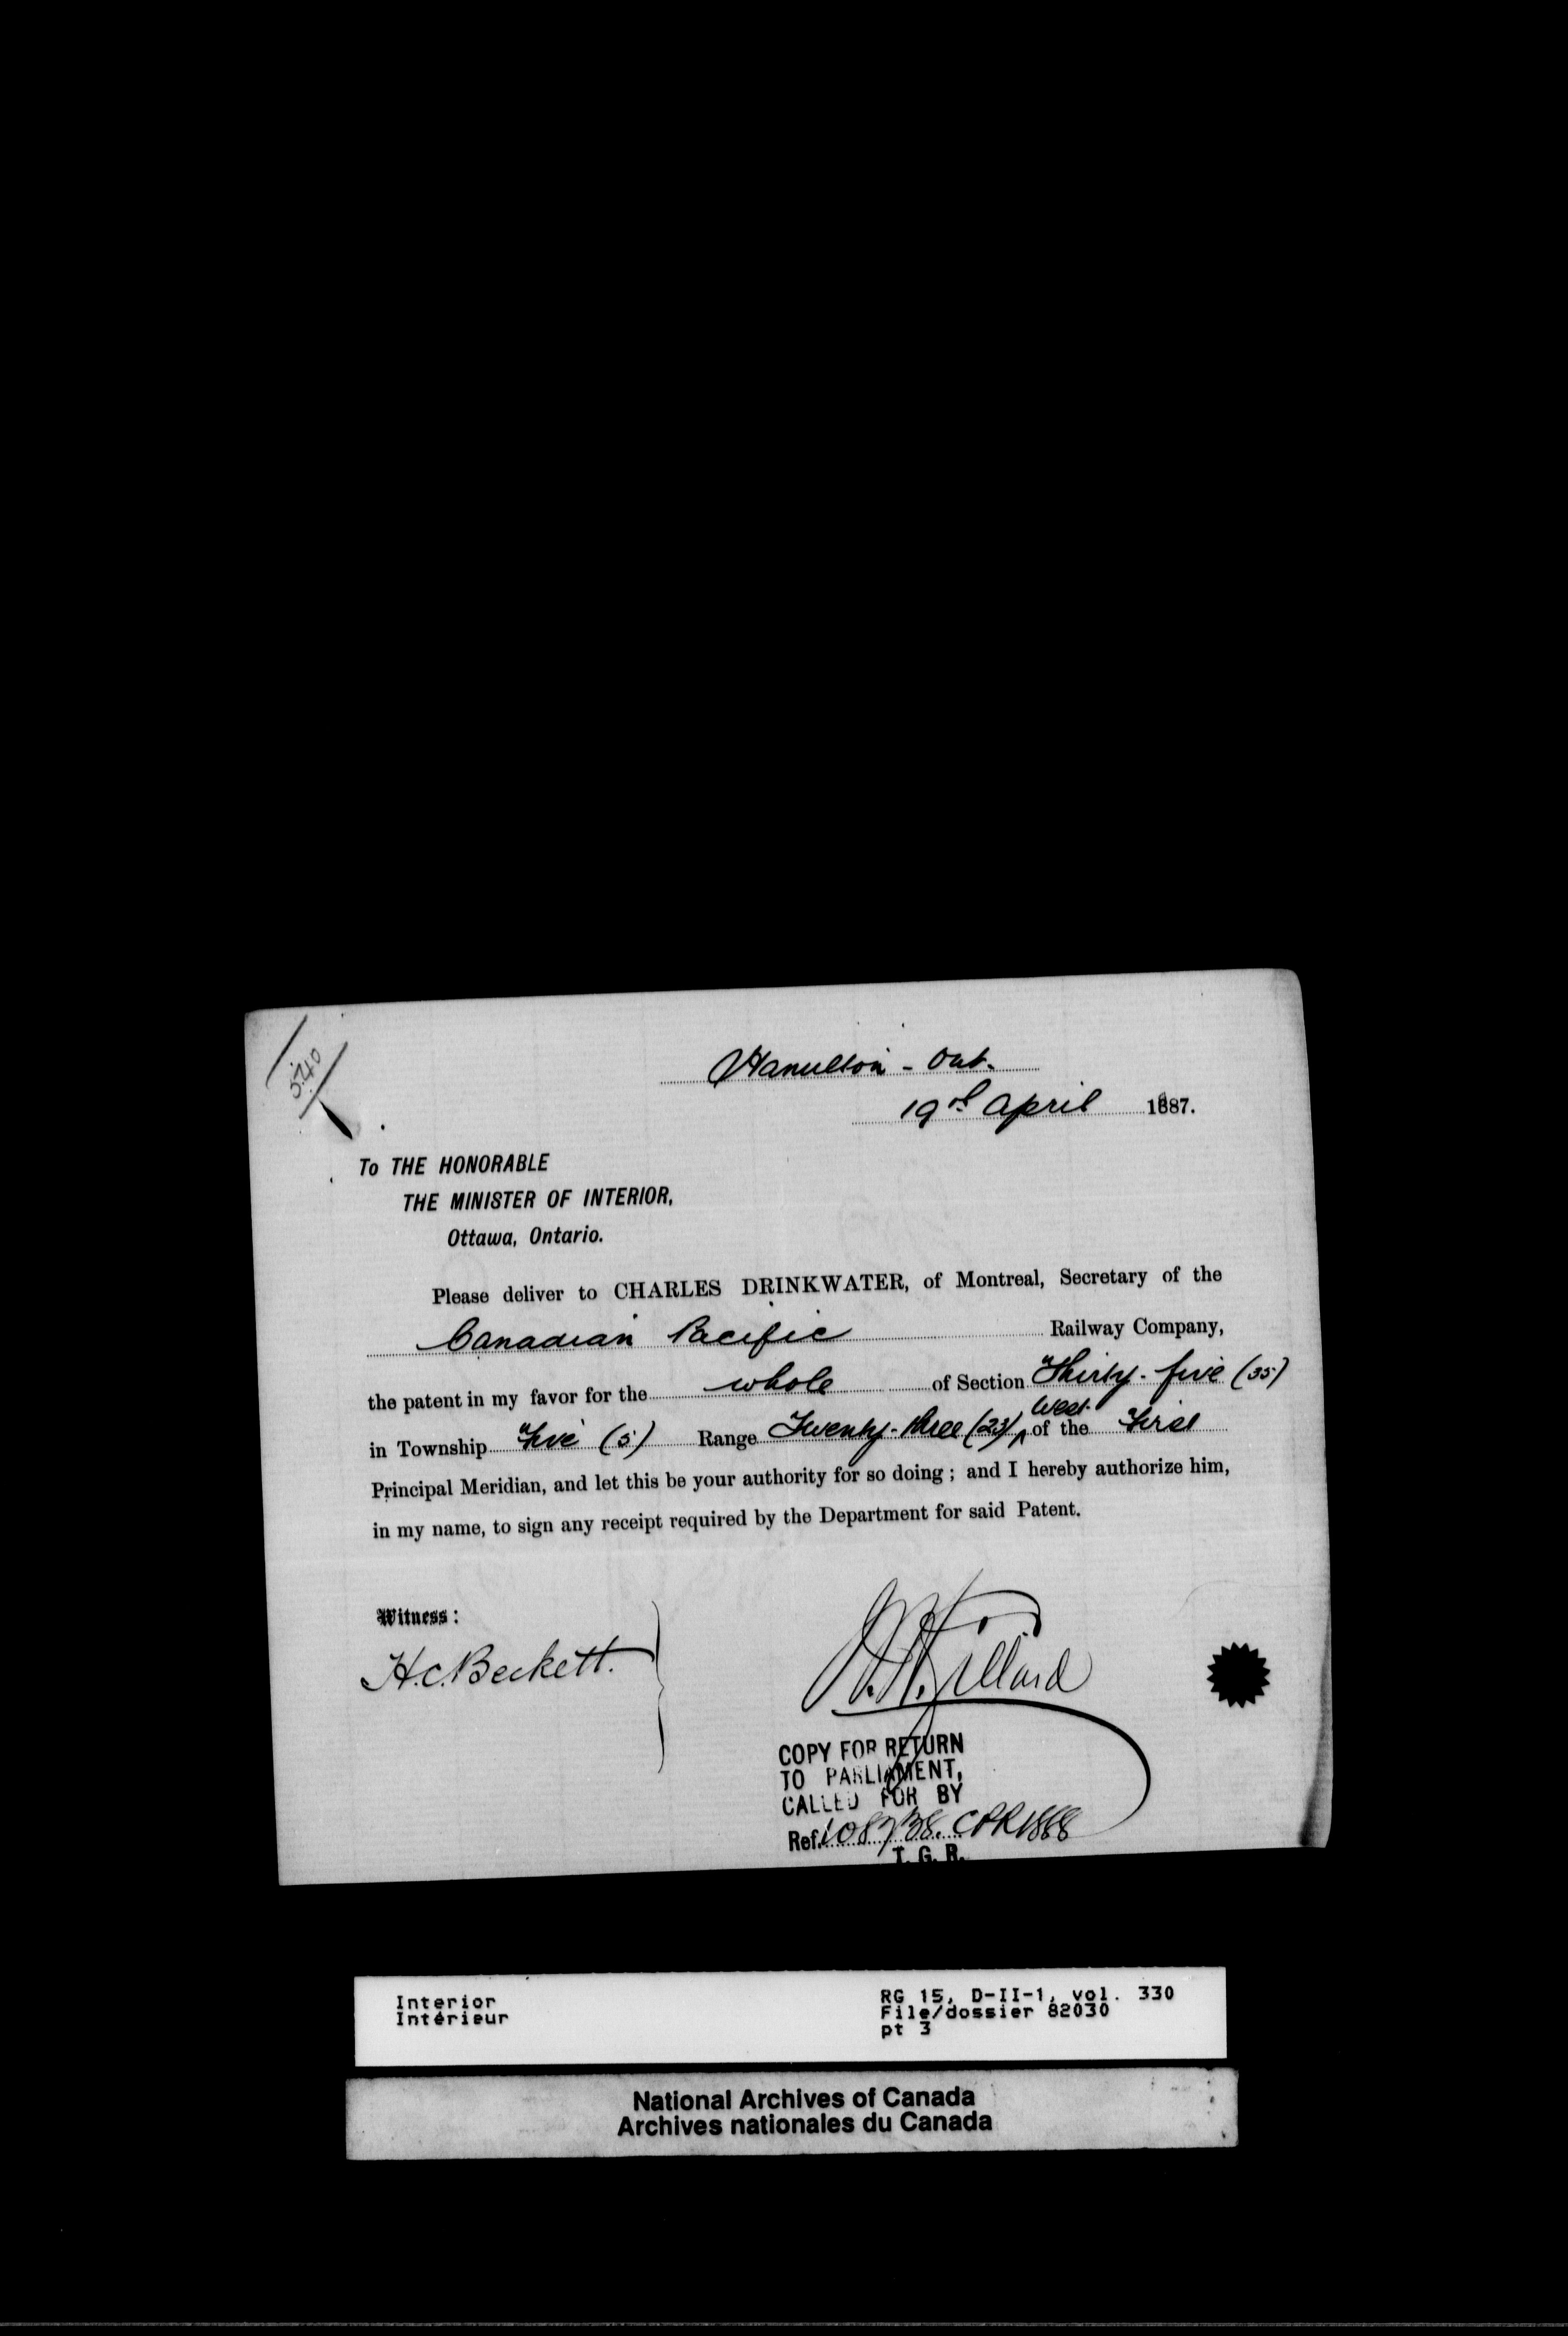 540
Hamilton - Ont.
19th April 1887.
To THE HONORABLE
THE MINISTER OF INTERIOR,
Ottawa, Ontario.
Please deliver to CHARLES DRINKWATER, of Montreal, Secretary of the
Canadian Pacific Railway Company,
the patent in my favor for the whole of Section Thirty-five (35)
West
in Township Five (5) Range Twenty-three (23) ^ of the First
Principal Meridian, and let this be your authority for so doing; and I hereby authorize him,
in my name, to sign any receipt required by the Department for said Patent.
Witness:
H.C. Beckett.
Gillard
COPY FOR RETURN
TO PARLIAMENT,
CALLED FOR BY
Ref. CPR 1888
T. G. R.
Interior
Intérieur
RG 15, D-II-1, vol. 330
File/dossier 82030
pt 3
National Archives of Canada
Archives nationales du Canada